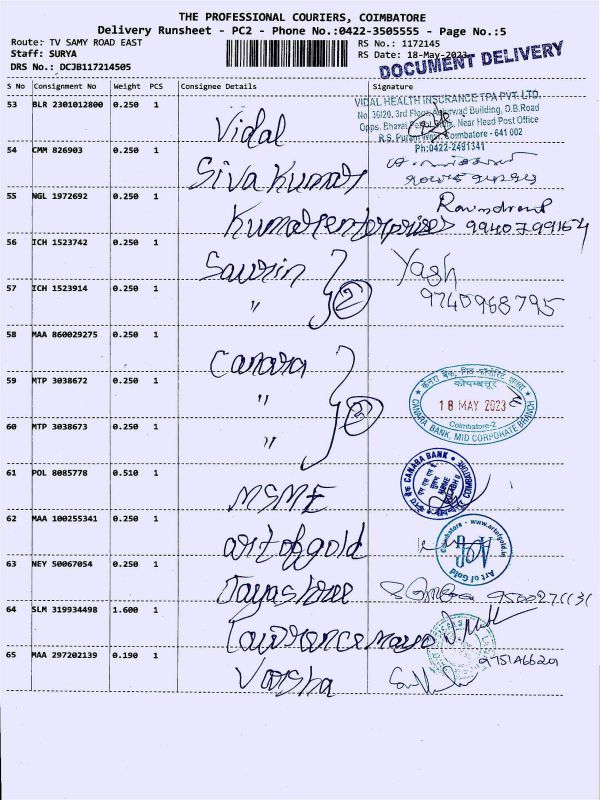 THE PROFESSIONAL COURIERS, COIMBATORE
Delivery Runsheet - PC2 - Phone No.:0422-3505555 - Page No.:5
Route: TV SAMY ROAD EAST
RS No.: 1172145
Staff: SURYA
RS Date: 18-May-2023
DRS No.: DCJB117214505
DOCUMENT DELIVERY
S No Consignment No Weight PCS Consignee Details Signature
53 BLR 2301012800 0.250 1 Vidal
VIDAL HEALTH INSURANCE TPA PVT. LTD.
No. 36/20, 3rd Floor, Building, D.B.Road
Opps. Bharat Near Head Post Office
R.S. Puram Coimbatore - 641 002
Ph:0422-2491341
54 CMM 826903 0.250 1 Siva Kumar
55 NGL 1972692 0.250 1 Kumar enterprises 9940799164
56 ICH 1523742 0.250 1 Saurin Yash
57 ICH 1523914 0.250 1 " 2 9740968795
58 MAA 860029275 0.250 1 Canara
59 MTP 3038672 0.250 1 "
60 MTP 3038673 0.250 1 " 3
18 MAY 2023
कोयम्बत्तूर
Coimbatore-2
CANARA BANK, MID CORPORATE BRANCH
61 POL 8085778 0.510 1 MSME
CANARA BANK
62 MAA 100255341 0.250 1 art of gold
Coimbatore - www.artofgold.in
Art of Gold
63 NEY 50067054 0.250 1 Jayashree
64 SLM 319934498 1.600 1 Lawrence mayo
65 MAA 297202139 0.190 1 Varsha